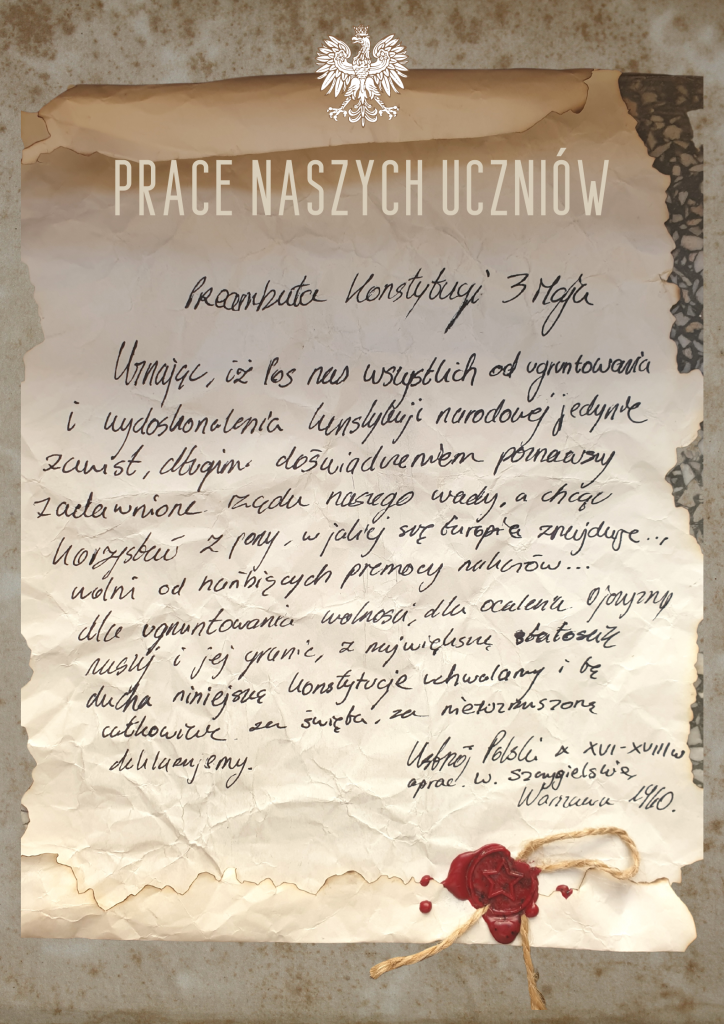 PRACE NASZYCH UCZNIÓW
Preambuła Konstytucji 3 Maja
Uznając, iż los nas wszystkich od ugruntowania
i wydoskonalenia konstytucji narodowej jedynie
zawisł, długim doświadczeniem poznawszy
zadawnione rządu naszego wady, a chcąc
korzystać z pory, w jakiej się Europa znajduje...,
wolni od hańbiących przemocy nakazów...
dla ugruntowania wolności, dla ocalenia Ojczyzny
naszej i jej granic, z największą stałością
ducha niniejszą konstytucję uchwalamy i tę
całkowicie za świętą, za niewzruszoną
deklarujemy.
Ustrój Polski XVI-XVIII w
oprac. W. Szczygielski
Warszawa 1960.